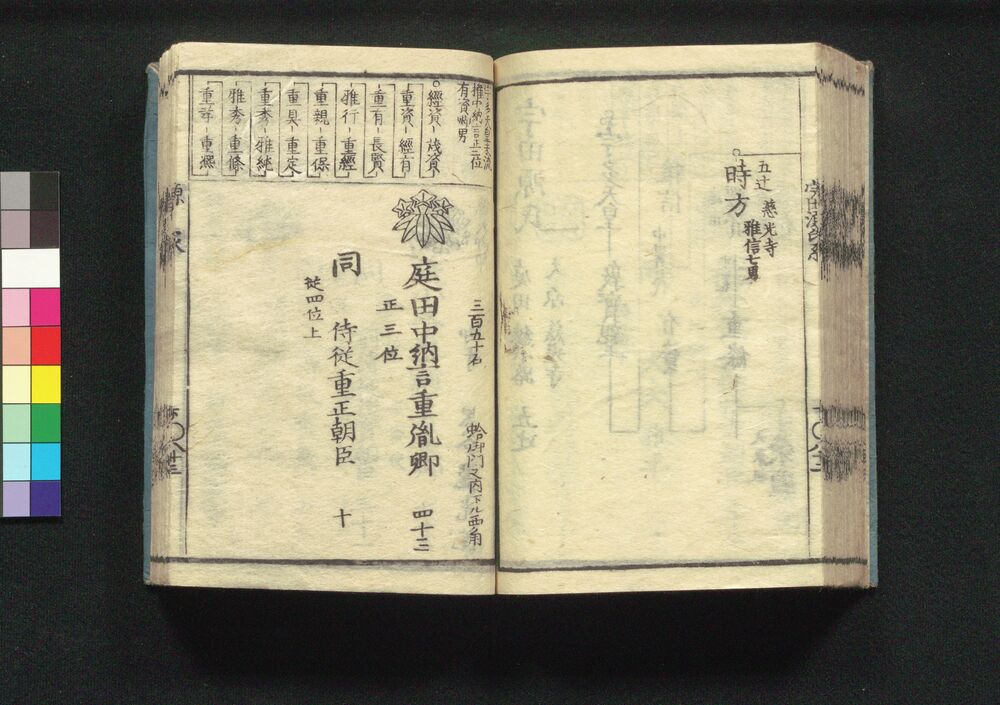 五辻
慈光寺
時方
雅信七男
推中納言正三位
有資卿男
經資 茂資
重資 經有
重有 長賢
雅行 重經
重親 重保
重具 重定
重秀 雅純
雅秀 重條
重祥 重凞
三百五十石
蛤御門又内下ル西角
庭田中納言重胤卿 四十三
正三位
同 侍従重正朝臣 十
従四位上